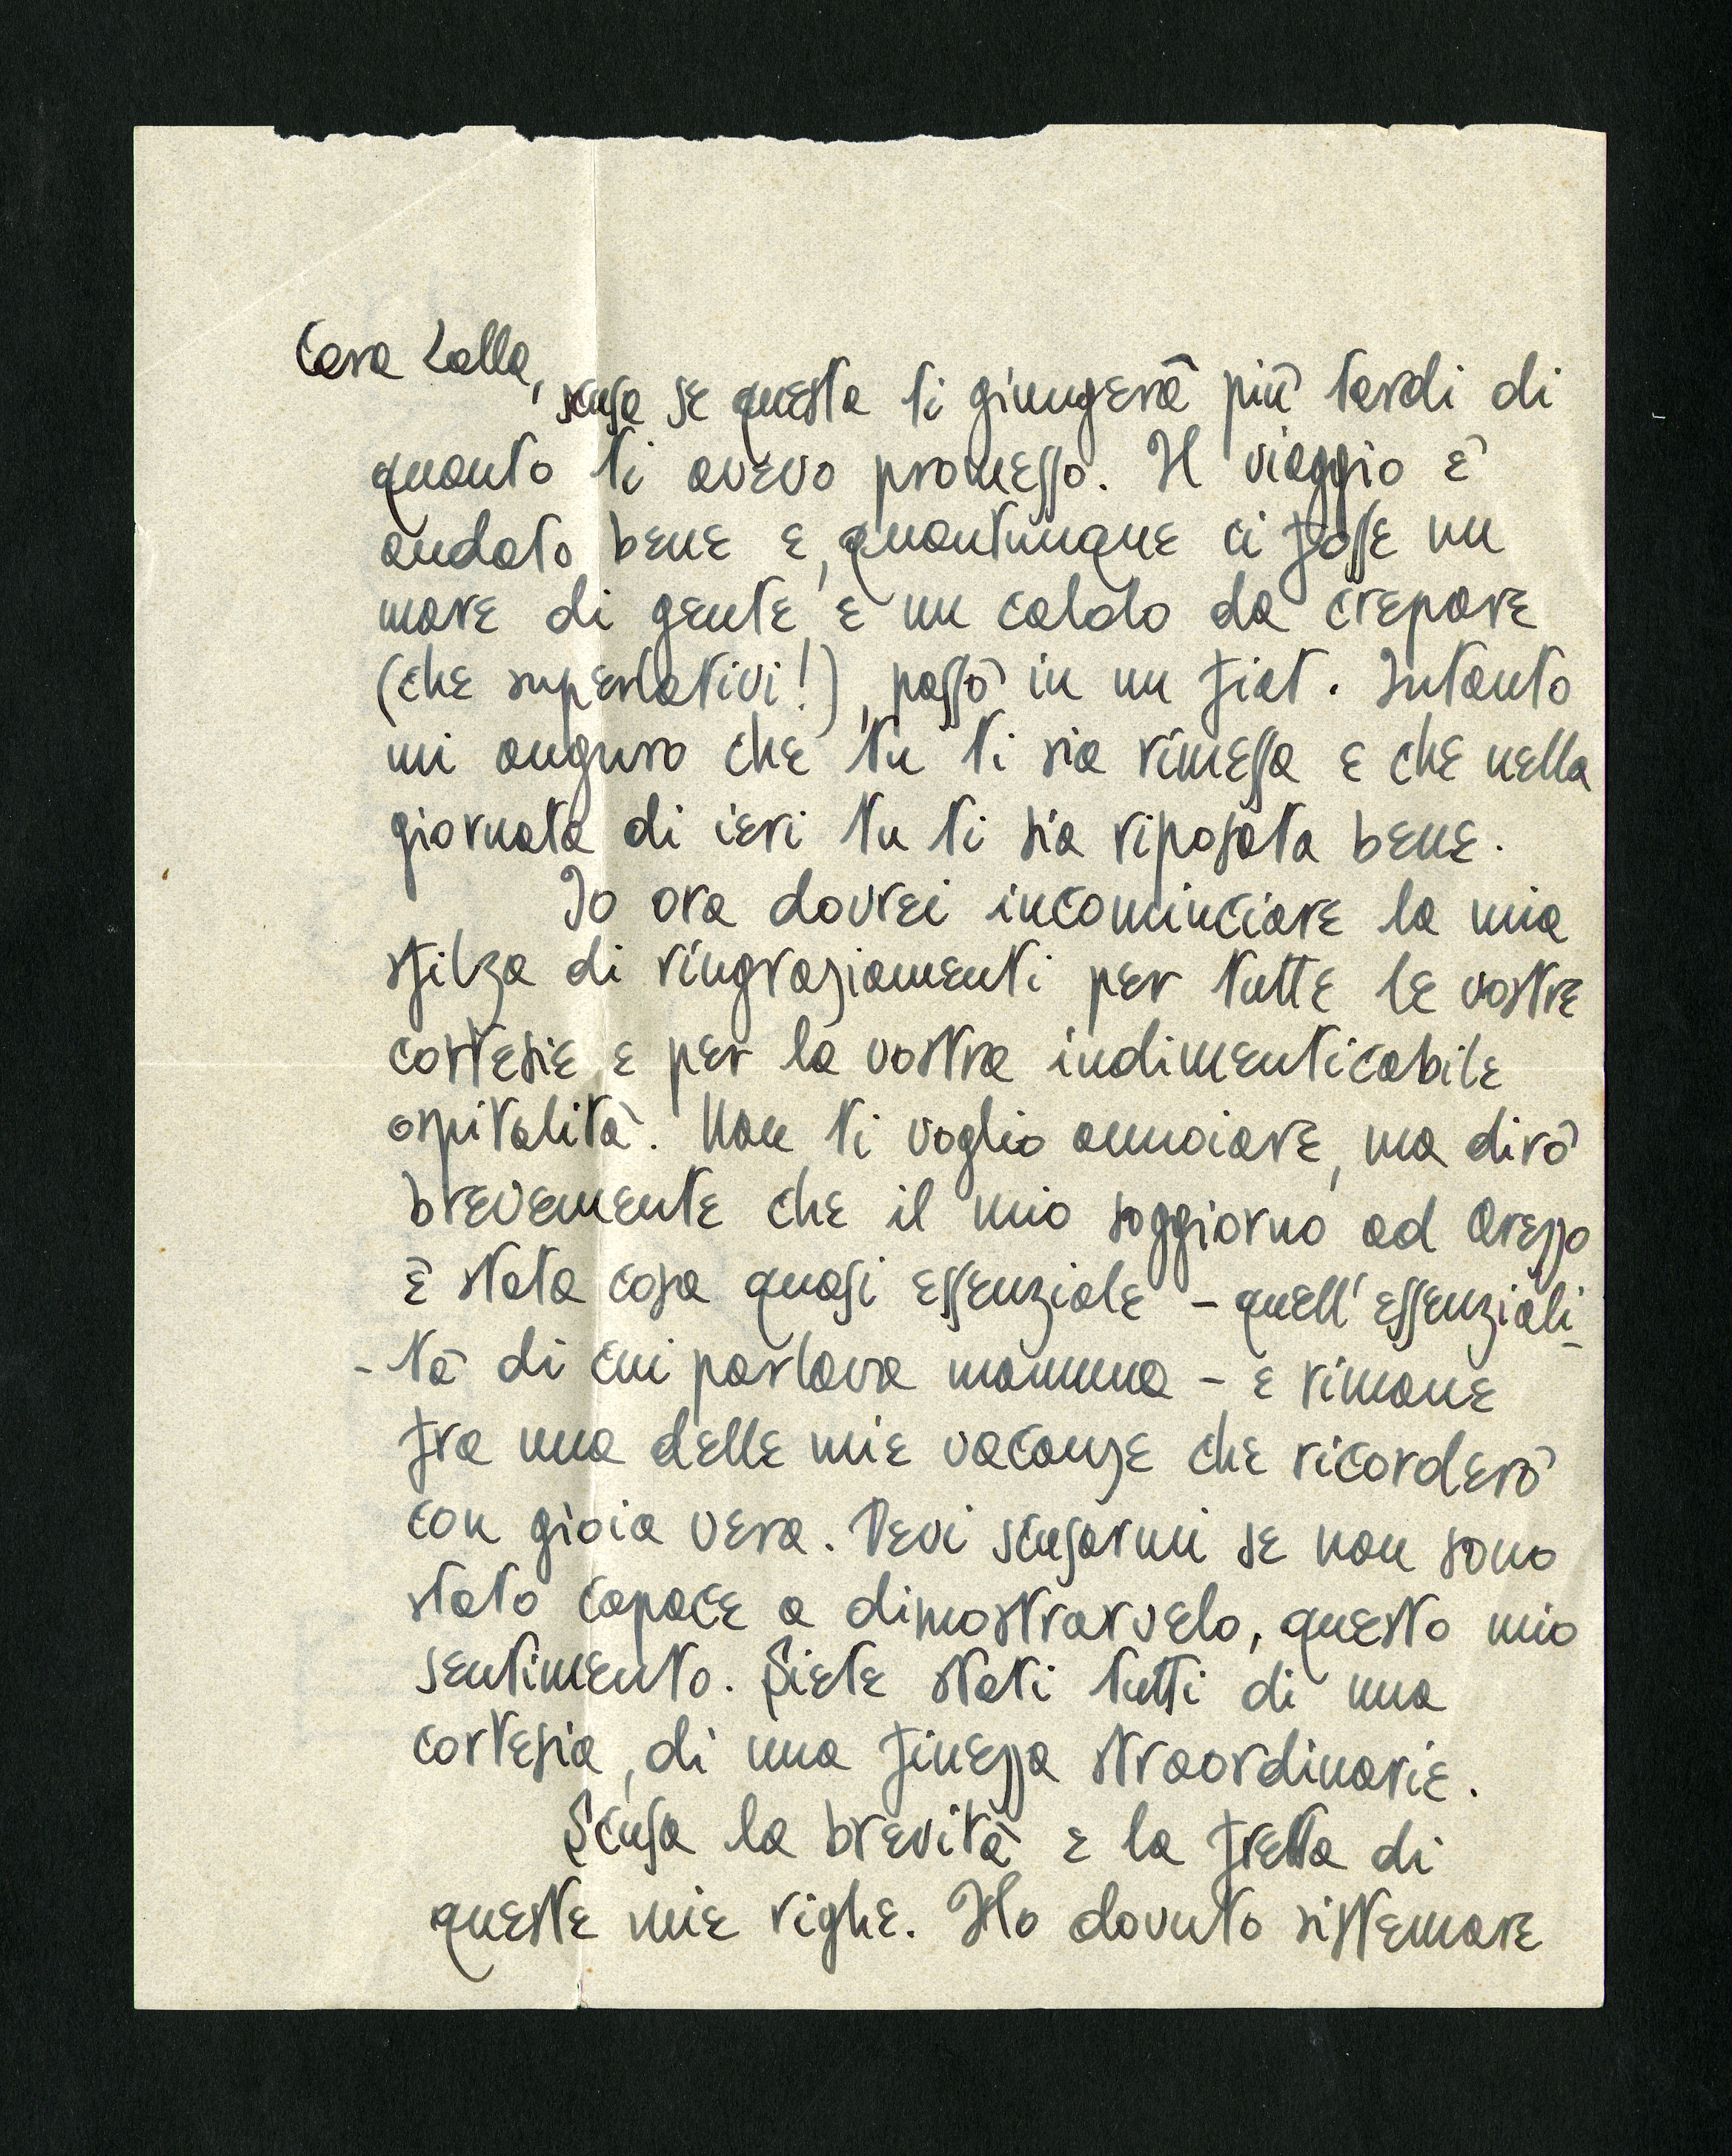 Cara Lalla,
scusa se questa ti giungerà più tardi di
quanto ti avevo promesso. Il viaggio è
andato bene e, quantunque ci fosse un
mare di gente e un caldo da crepare
(che superlativi!), passò in un fiat. Intanto
mi auguro che tu ti sia rimessa e che nella
giornata di ieri tu ti sia riposata bene.
Io ora dovrei incominciare la mia
sfilza di ringraziamenti per tutte le vostre
cortesie e per la vostra indimenticabile
ospitalità. Non ti voglio annoiare, ma dirò
brevemente che il mio soggiorno ad Arezzo
è stata cosa quasi essenziale - quell'essenziali-
- tà di cui parlava mamma - e rimane
fra una delle mie vacanze che ricorderò
con gioia vera. Devi scusarmi se non sono
stato capace a dimostrarvelo, questo mio
sentimento. Siete stati tutti di una
cortesia, di una finezza straordinarie.
Scusa la brevità e la fretta di
queste mie righe. Ho dovuto sistemare